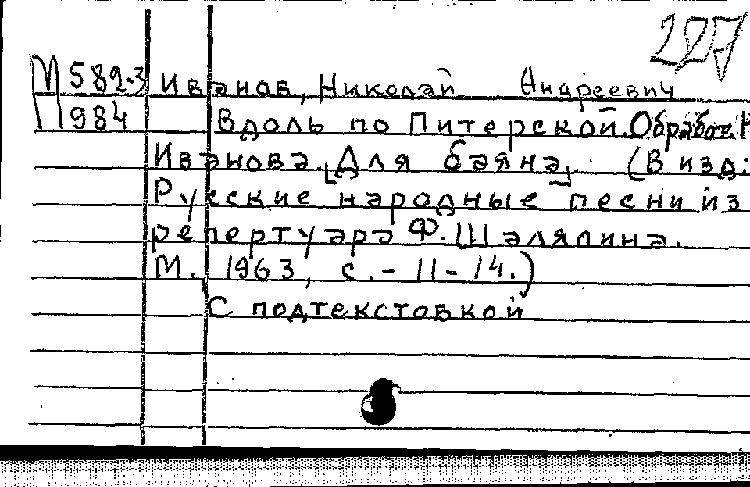 227
М 582-3 Иванов, Николай Андреевич
П 984 Вдоль по Питерской. Обработ. Н
Иванова. [Для баяна]. (В изд:
Русские народные песни из
репертуара Ф. Шаляпина.
М. 1963, с. - 11 - 14.)
С подтекстовкой